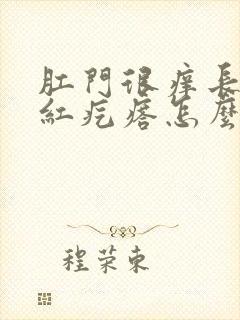 肛門很痒長
紅疙瘩怎麼
程荣東